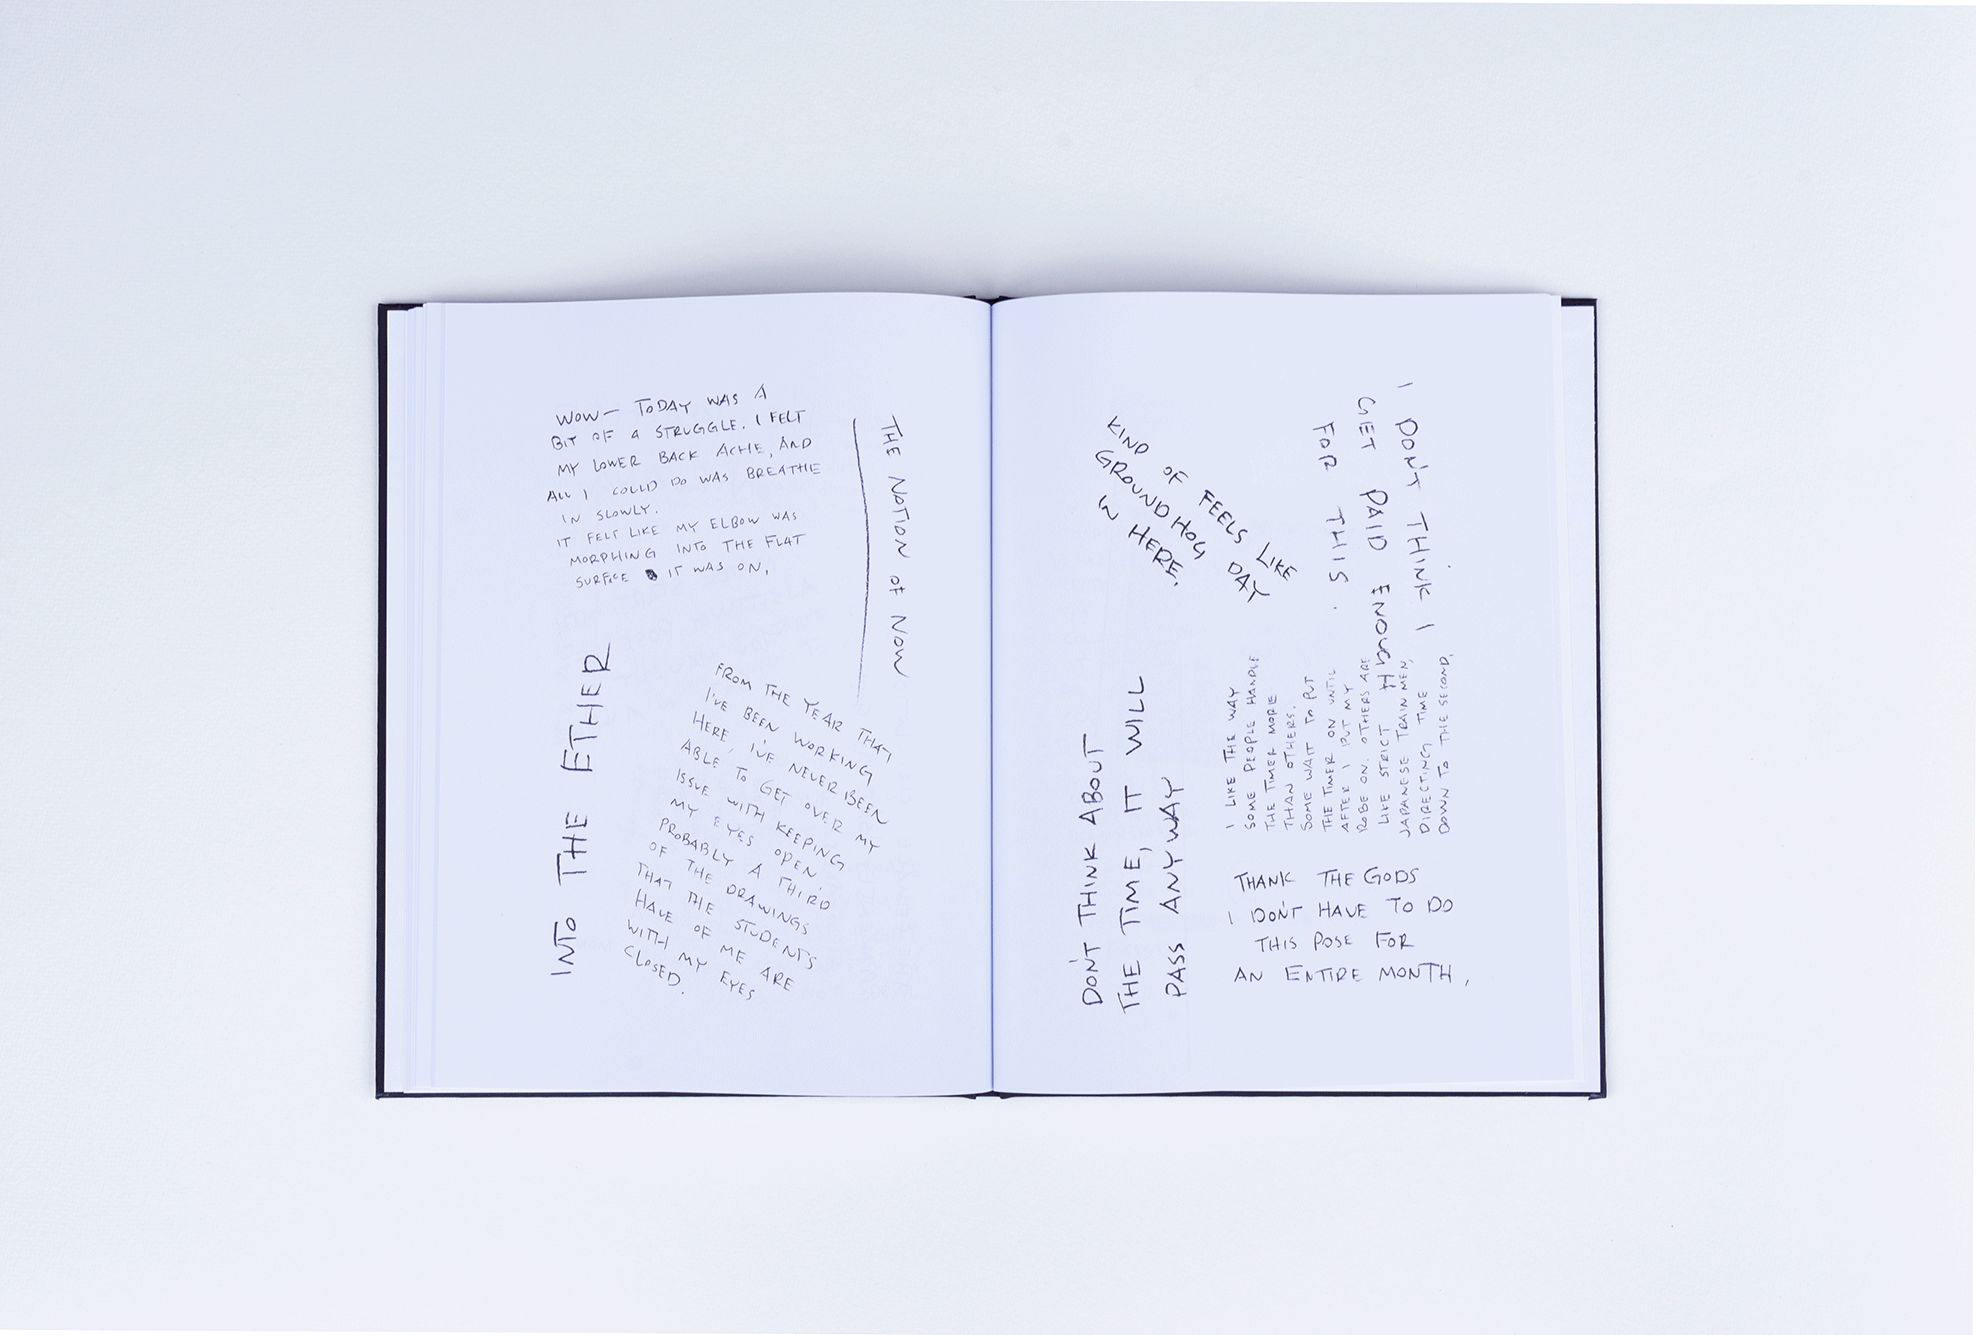 WOW — TODAY WAS A
BIT OF A STRUGGLE. I FELT
MY LOWER BACK ACHE, AND
ALL I COULD DO WAS BREATHE
IN SLOWLY.
IT FELT LIKE MY ELBOW WAS
MORPHING INTO THE FLAT
SURFACE IT WAS ON.
THE NOTION OF NOW
INTO THE ETHER
FROM THE YEAR THAT
I'VE BEEN WORKING
HERE, I'VE NEVER BEEN
ABLE TO GET OVER MY
ISSUE WITH KEEPING
MY EYES OPEN.
PROBABLY A THIRD
OF THE DRAWINGS
THAT THE STUDENTS
HAVE OF ME ARE
WITH MY EYES
CLOSED.
KIND OF FEELS LIKE
GROUNDHOG DAY
IN HERE.
I DON'T THINK I
GET PAID ENOUGH
FOR THIS.
DON'T THINK ABOUT
THE TIME, IT WILL
PASS ANYWAY
I LIKE THE WAY
SOME PEOPLE HANDLE
THE TIMER MORE
THAN OTHERS.
SOME WAIT TO PUT
THE TIMER ON UNTIL
AFTER I PUT MY
ROBE ON. OTHERS ARE
LIKE STRICT
JAPANESE TRAIN MEN,
DIRECTING TIME
DOWN TO THE SECOND.
THANK THE GODS
I DON'T HAVE TO DO
THIS POSE FOR
AN ENTIRE MONTH.